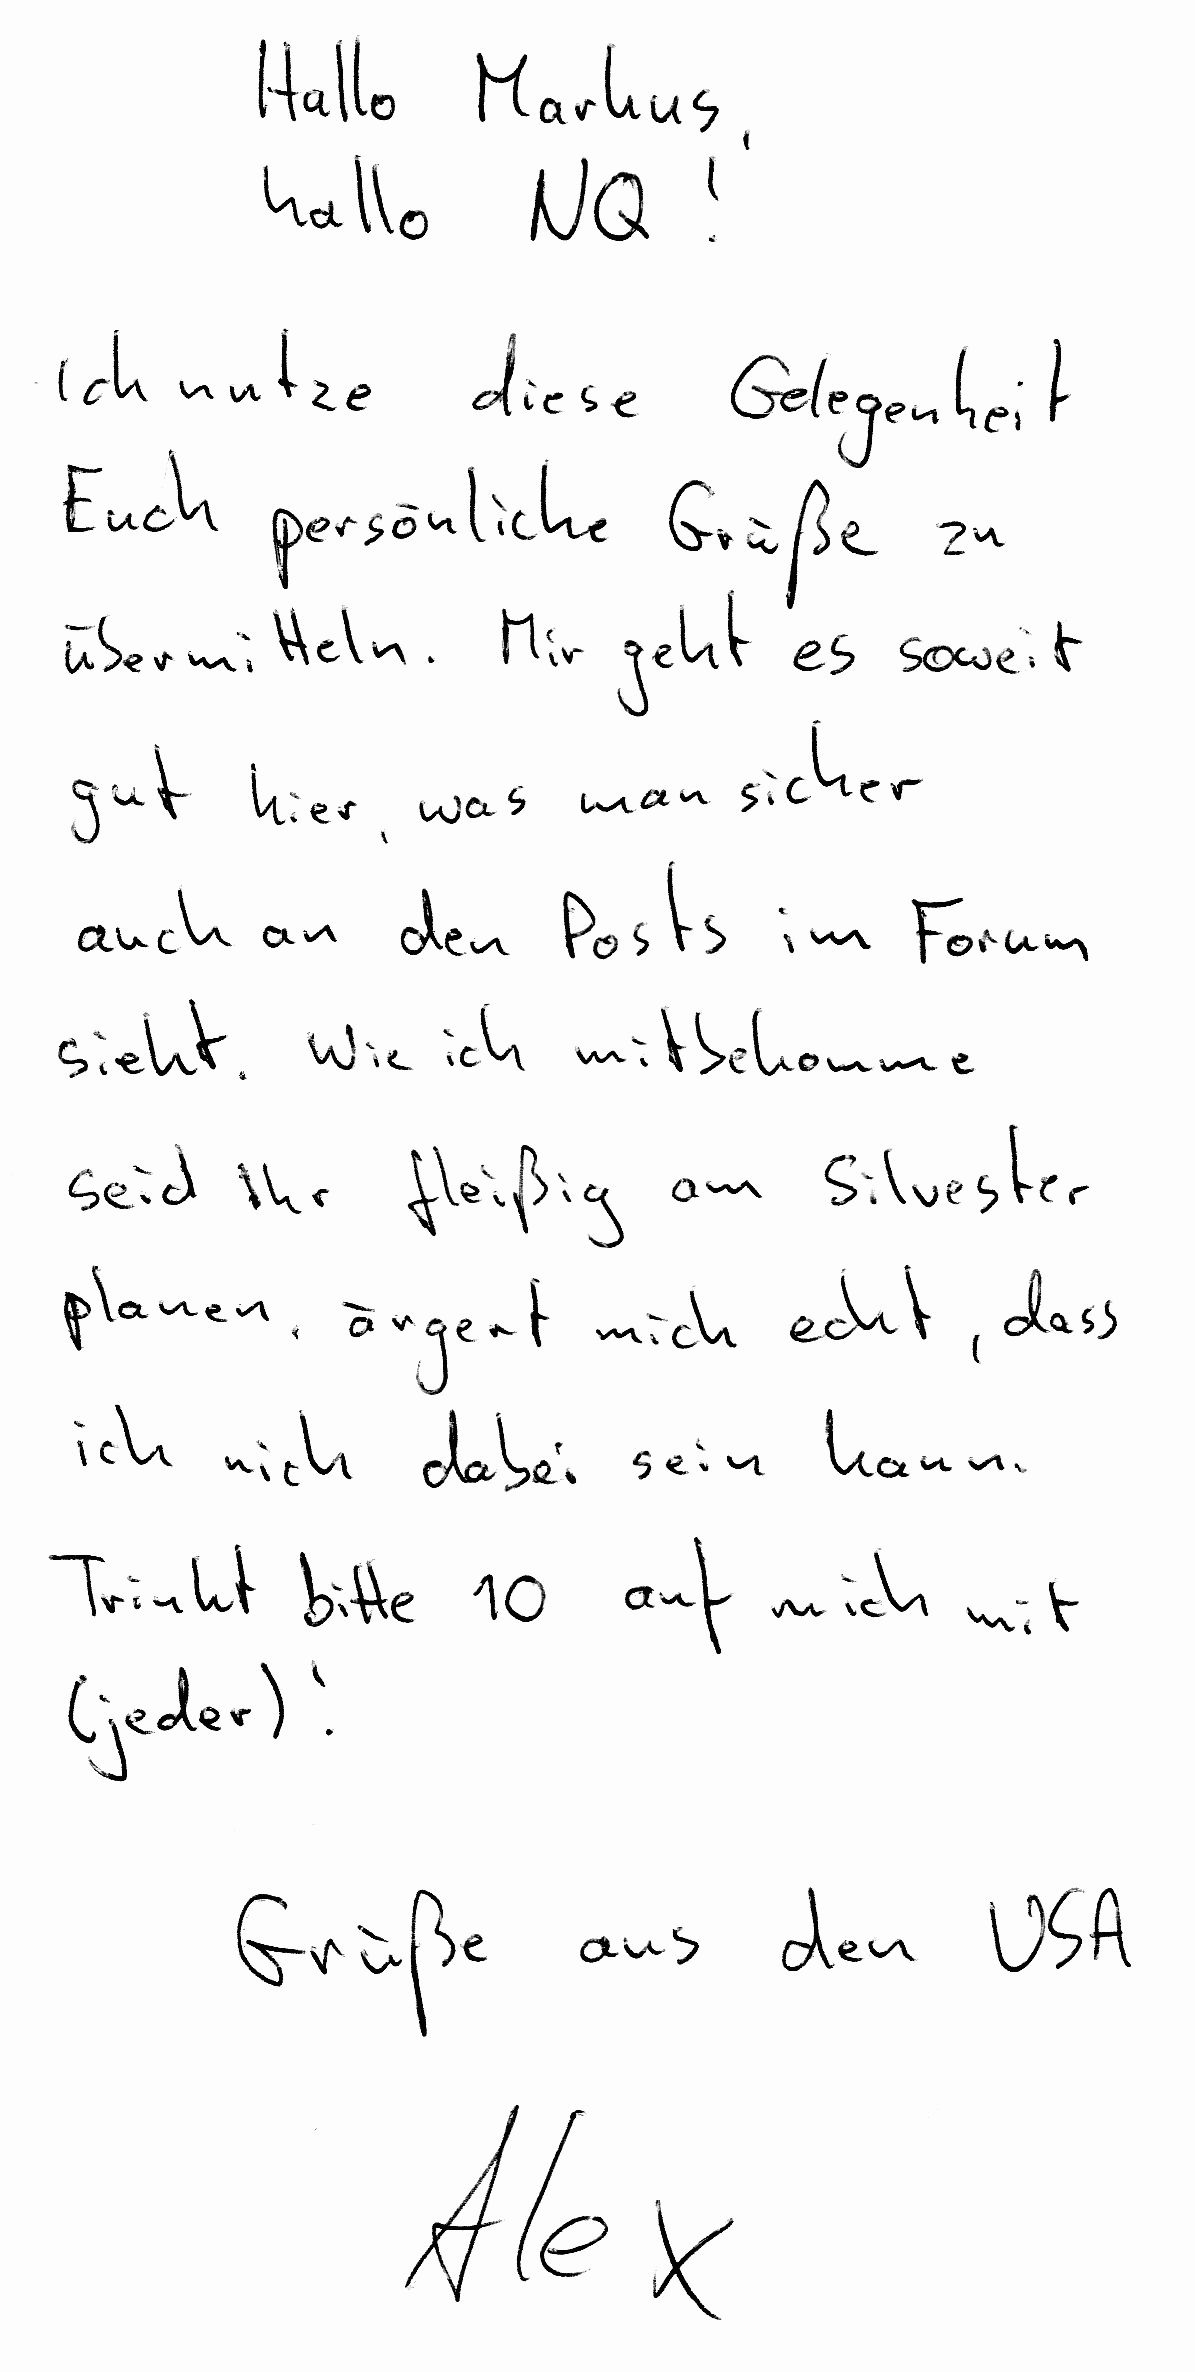 Hallo Markus,
hallo NQ!
Ich nutze diese Gelegenheit
Euch persönliche Grüße zu
übermitteln. Mir geht es soweit
gut hier, was man sicher
auch an den Posts im Forum
sieht. Wie ich mitbekomme
seid Ihr fleißig am Silvester
planen, ärgert mich echt, dass
ich nich dabei sein kann.
Trinkt bitte 10 auf mich mit
(jeder)!
Grüße aus den USA
Alex